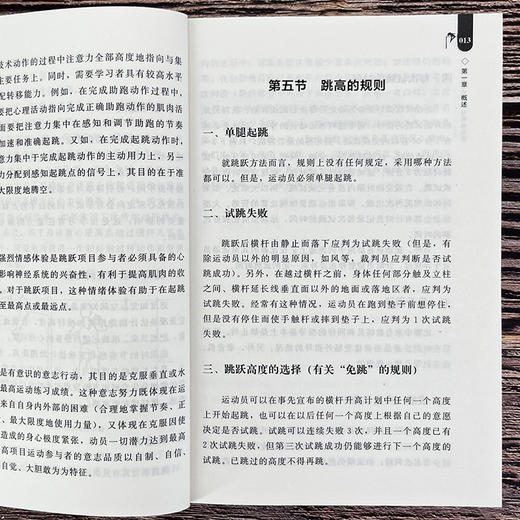 技术动作的过程中注意力全部高度地指向与集
主要任务上。同时，需要学习者具有较高水平
配转移能力。例如，在完成助跑动作过程中，
要把心理活动指向完成正确助跑的肌肉活
要把注意力集中在感知和调节助跑的节奏
速和准确起跳。又如，在完成起跳动作时，
意力集中于完成起跳动作的主动用力上，另一
力分配到感知起跳点的信号上，其目的在于准
大限度地腾空。
强烈情感体验是跳跃项目参与者必须具备的心
影响神经系统的兴奋性，有利于提高肌肉的收
。对于跳跃项目，这种情绪体验有助于在起跳
至最高点或最远点。
是有意识的意志行动，其目的是克服垂直或水
最高运动练习成绩。这种意志努力既体现在运
来自自身内外部的困难（合理地掌握节奏、正
、最大限度地使用力量），又体现在克服因使
造成的身心极度紧张，动员一切潜力达到最高
高项目运动参与者的意志品质以自制、自信、
自觉、大胆敢为为特征。
013
第一章 概述
第五节 跳高的规则
一、单腿起跳
就跳跃方法而言，规则上没有任何规定，采用哪种方法
都可以。但是，运动员必须单腿起跳。
二、试跳失败
跳跃后横杆由静止而落下应判为试跳失败（但是，有
除运动员以外的明显原因，如风等，裁判员应判断是否试
跳成功）。另外，在越过横杆之前，身体任何部分触及立柱
之间、横杆延长线垂直面以外的地面或落地区者，应判为
试跳失败。经常有这种情况，运动员在跑到垫子前想停住，
但是没有停住而使手触杆或摔到垫子上，应判为1次试跳
失败。
三、跳跃高度的选择（有关“免跳”的规则）
运动员可以在事先宣布的横杆升高计划中任何一个高
度上开始起跳，也可在以后任何一个高度上根据自己的意愿
决定是否试跳。试跳可以连续失败3次，并且一个高度已有
2次试跳失败，但第三次试跳成功仍能够进行下一个高度的
试跳。已跳过的高度不得再跳。